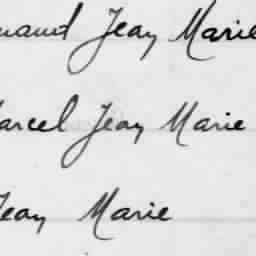 Jean Marie
Marcel Jean Marie
Jean Marie